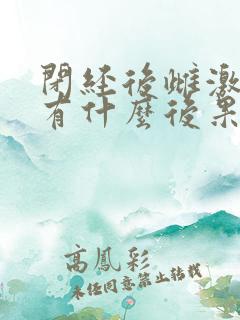 閉經後雌激
有什麼後果
高鳳彩
未任同意禁止轉載